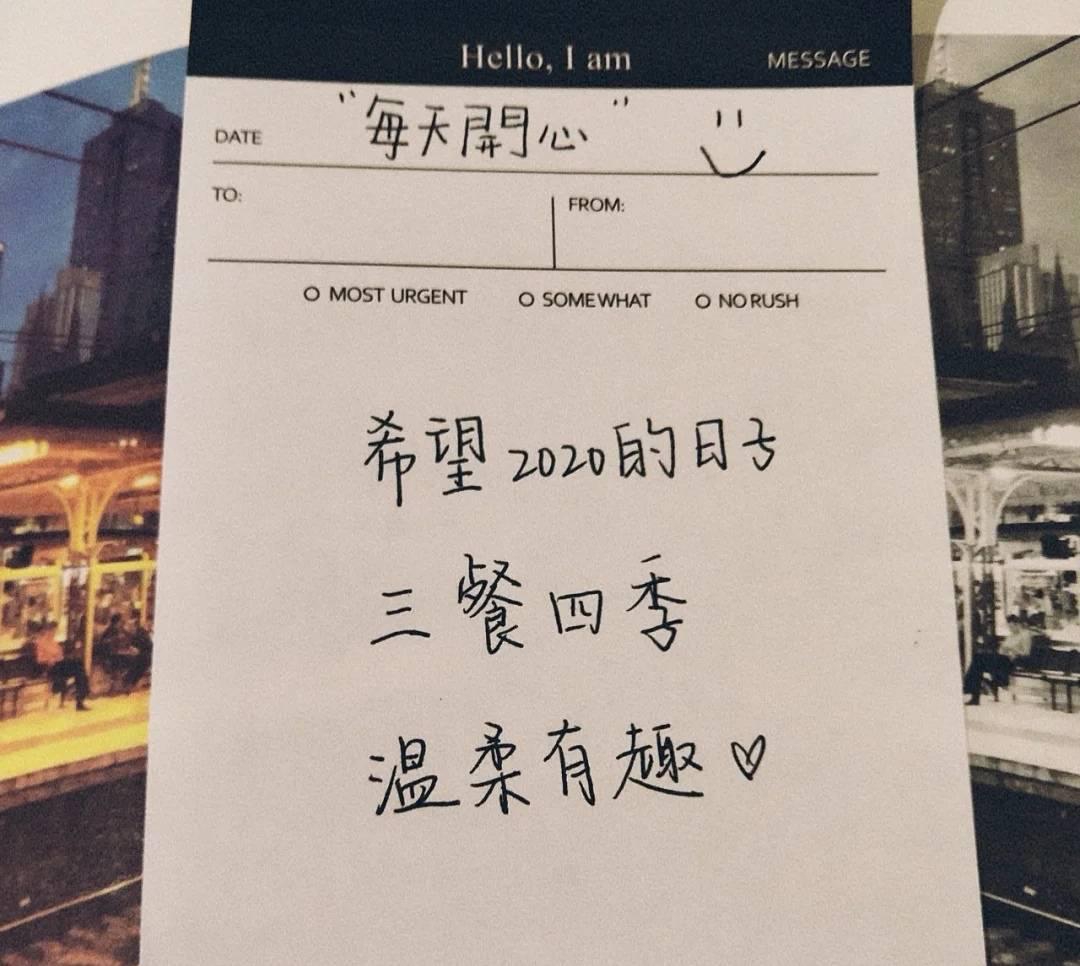 Hello, I am MESSAGE
DATE "每天開心"
TO: FROM:
O MOST URGENT O SOMEWHAT O NO RUSH
希望2020的日子
三餐四季
温柔有趣♡